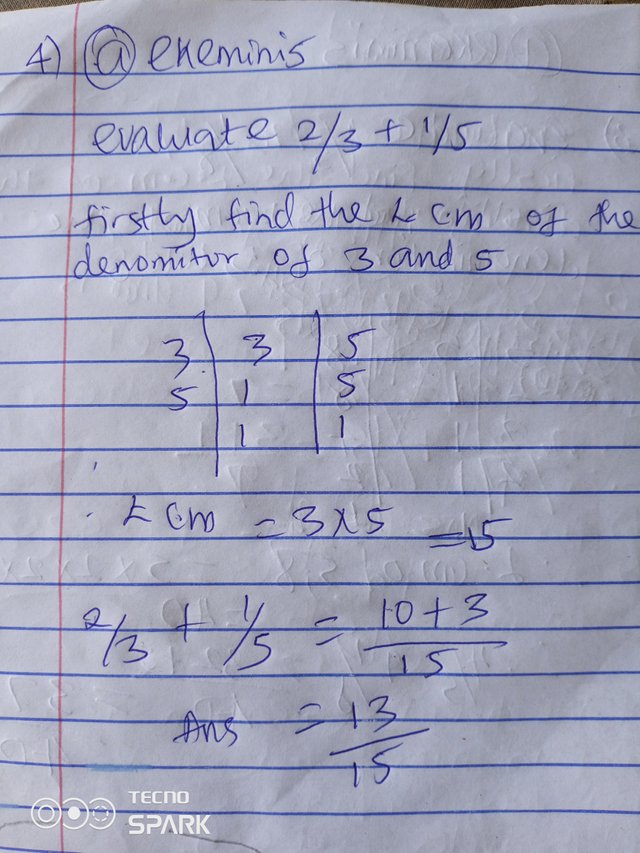 4) a ekeminis
evaluate 2/3 + 1/5
firstly find the L Cm of the
denomitor of 3 and 5
3 | 3 | 5
5 | 1 | 5
| 1 | 1
L Cm = 3 x 5 = 15
2/3 + 1/5 = 10 + 3
15
Ans = 13
15
TECNO
SPARK